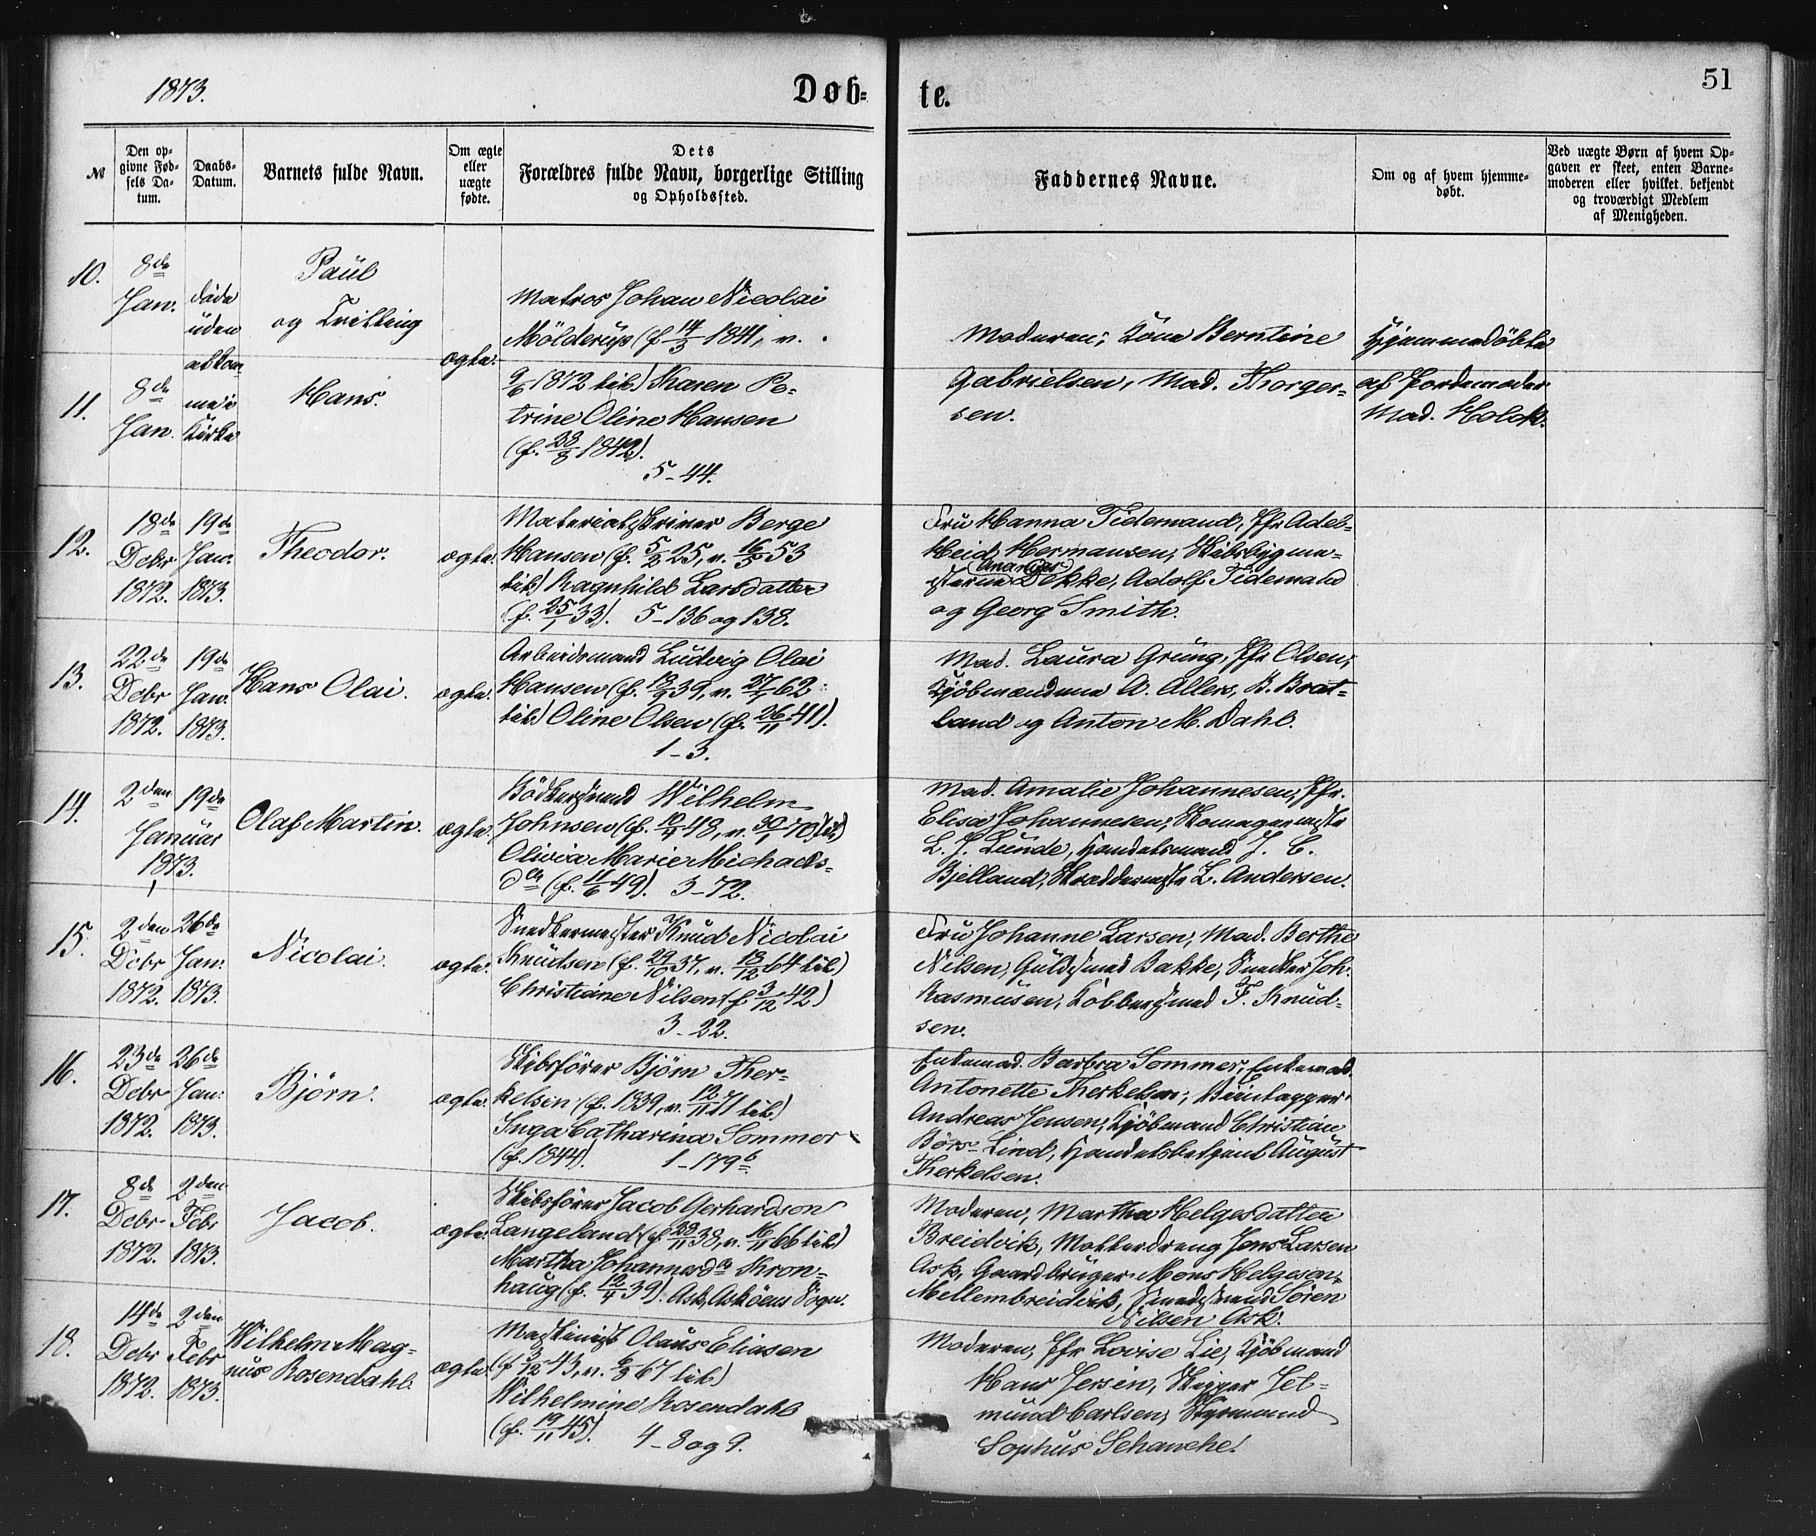 1873.
Døb-
te.
51
№
Den op-
givne Fød-
sels Da-
tum.
Daabs-
Datum.
Barnets fulde Navn.
Om ægte
eller
uægte
fødte.
Dets
Forældres fulde Navn, borgerlige Stilling
og Opholdssted.
Faddernes Navne.
Om og af hvem hjemme-
døbt.
Ved uægte Børn af hvem Op-
gaven er skeet, enten Barne-
moderen eller hvilket bekjendt
og troværdigt Medlem
af Menigheden.
10.
8de
Jan.
døde
uden
at kom
me i
Kirke
Paul
og Tvilling
ægte.
Matros Johan Nicolai
Mölderup (f. 14/3 1841, v.
9/6 1872 til) Karen Pe-
trine Oline Hansen
(f. 28/8 1842).
5-44.
Moderen; Kone Berntine
Gabrielsen, Mad. Thorger-
sen.
Hjemmedöbte
af Jordemoder
Mad. Holck.
11.
8de
Jan.
Hans.
12.
18de
Debr
1872.
19de
Jan.
1873.
Theodor.
ægte.
Materialskriver Berge
Hansen (f. 5/2 25, v. 16/5 53
til) Ragnhild Larsdatter
(f. 25/1 33). 5-136 og 138.
Fru Hanna Tidemand, Jfr Adel-
heid Hermansen, Skibsbygme-
(Ananias)
sterne Dekke, Adolf Tidemand
og Georg Smith.
13.
22de
Debr
1872.
19de
Jan.
1873.
Hans Olai.
ægte.
Arbeidsmand Ludvig Olai
Hansen (f. 12/9 39, v. 27/7 62
til) Oline Olsen (f. 26/11 41).
1-3.
Mad. Laura Grung, Jfr Olsen,
Kjöbmændene A. Allers, B. Brat-
land og Anton M. Dahl.
14.
2den
Januar
1873.
19de
Olaf Martin.
ægte.
Bödkersvend Wilhelm
Johnsen (f. 10/4 48, v. 30/1 70 til)
Olivia Marie Michaels-
der (f. 11/6 49). 3-72.
Mad. Amalie Johannesen, Jfr.
Elisa Johannesen, Skomagermstr
L. J. Lunde, Handelsmand J. C.
Bjelland, Skræddermstr L. Andersen.
15.
2den
Debr
1872.
26de
Jan.
1873.
Nicolai.
ægte.
Snedkermester Knud Nicolai
Knudsen (f. 29/10 37, v. 13/12 64 til)
Christiane Nilsen (f. 3/12 42)
3-22.
Fru Johanne Larsen, Mad. Berthe
Nilsen, Guldsmed Bakke, Snedker Joh.
Rasmusen, Kobbersmed F. Knud-
sen.
16.
23de
Debr
1872.
26de
Jan.
1873.
Bjørn.
ægte.
Skibsförer Bjørn Ther-
kelsen (f. 1839, v. 12/11 71 til)
Inga Catharina Sommer
(f. 1844). 1-179b
Enkemad. Barbra Sommer, Enkemad.
Antonette Therkelsen, Viintapper
Andreas Jensen, Kjöbmand Christian
Börs Lind, Handelsbetjent August
Therkelsen.
17.
8de
Debr
1872.
2den
Febr
1873.
Jacob.
ægte.
Skibsförer Jacob Gerhardson
Langeland (f. 29/11 38, v. 16/11 66 til)
Martha Johannesdr Kron-
haug (f. 12/4 39). Ask, Asköens Sogn.
Moderen, Martha Helgesdatter
Breidvik, Matterdreng Jens Larsen
Ask, Gaardbruger Mons Helgesen
Mellembreidvik, Smedsvend Sören
Nilsen Ask.
18.
14de
Debr
1872.
2den
Febr
1873.
Wilhelm Mag-
nus Rosendahl.
ægte.
Maskinist Olaus Eliasen
(f. 3/12 43, v. 6/3 67 til)
Wilhelmine Rosendahl
(f. 19/11 45). 4-8 og 9.
Moderen, Jfr Lovise Lie, Kjöbmand
Hans Jersin, Skipper Jel-
mund Carlsen, Styrmand
Sophus Schanche.